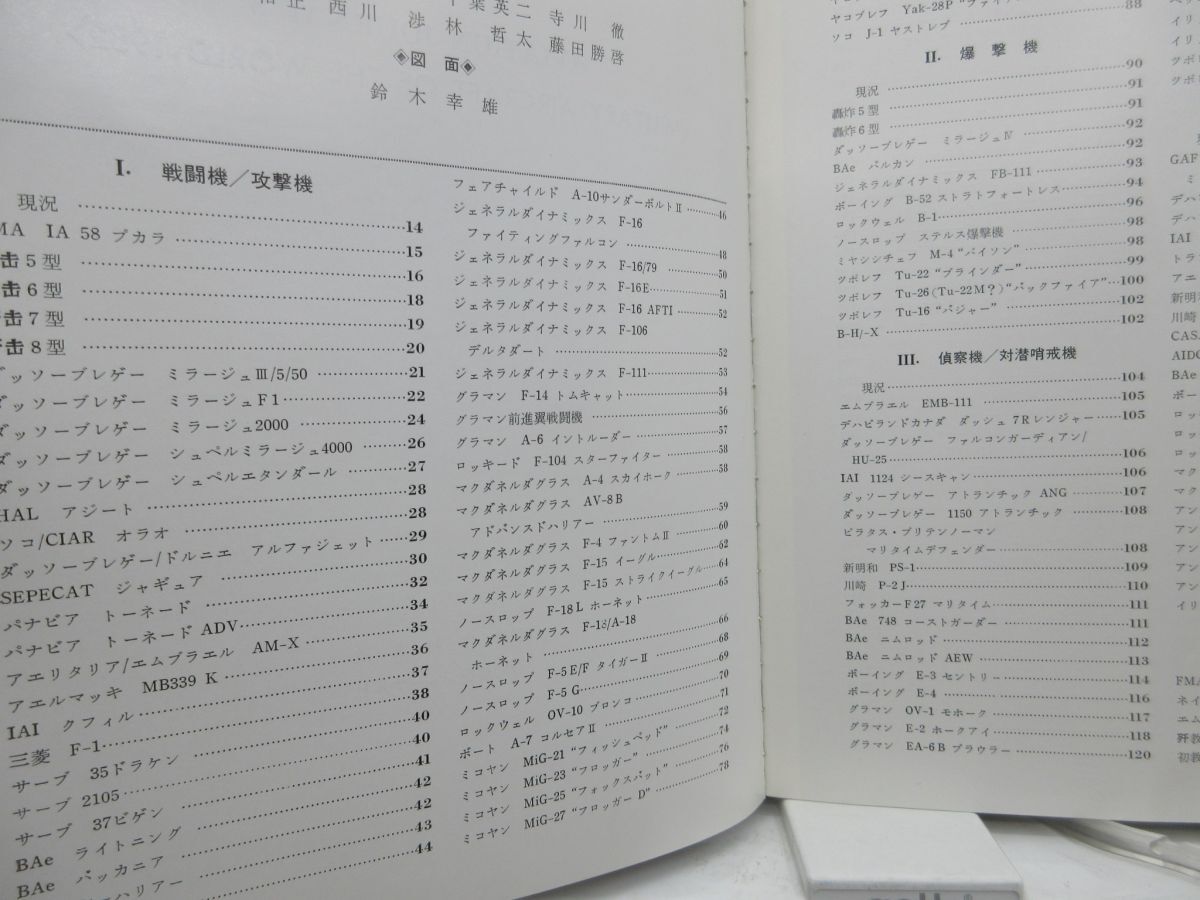 千葉英二 寺川 徹
西川 渉 林 哲太 藤田勝啓
◈図 面◈
鈴木幸雄
I. 戦闘機／攻撃機
現況 14
MA IA 58 プカラ 15
击5型 16
击6型 18
击7型 19
击8型 20
ダッソーブレゲー ミラージュⅢ/5/50 21
ダッソーブレゲー ミラージュF1 22
ダッソーブレゲー ミラージュ2000 24
ダッソーブレゲー シュペルミラージュ4000 26
ダッソーブレゲー シュペルエタンダール 27
HAL アジート 28
ソコ/CIAR オラオ 28
ダッソーブレゲー/ドルニエ アルファジェット 29
SEPECAT ジャギュア 30
パナビア トーネード 32
パナビア トーネード ADV 34
アエリタリア/エムブラエル AM-X 35
アエルマッキ MB339 K 36
IAI クフィル 37
三菱 F-1 38
サーブ 35ドラケン 40
サーブ 2105 40
サーブ 37ビゲン 41
BAe ライトニング 42
BAe バッカニア 42
ハリアー 43
44
フェアチャイルド A-10サンダーボルトⅡ 46
ジェネラルダイナミックス F-16
ファイティングファルコン 48
ジェネラルダイナミックス F-16/79 50
ジェネラルダイナミックス F-16E 51
ジェネラルダイナミックス F-16 AFTI 52
ジェネラルダイナミックス F-106
デルタダート 52
ジェネラルダイナミックス F-111 53
グラマン F-14 トムキャット 54
グラマン前進翼戦闘機 56
グラマン A-6 イントルーダー 57
ロッキード F-104 スターファイター 58
マクダネルダグラス A-4 スカイホーク 58
マクダネルダグラス AV-8B
アドバンスドハリアー 59
マクダネルダグラス F-4 ファントムⅡ 60
マクダネルダグラス F-15 イーグル 62
マクダネルダグラス F-15 ストライクイーグル 64
ノースロップ F-18L ホーネット 65
マクダネルダグラス F-18/A-18
ホーネット 66
ノースロップ F-5E/F タイガーⅡ 68
ノースロップ F-5G 69
ロックウェル OV-10 ブロンコ 70
ボート A-7 コルセアⅡ 71
ミコヤン MiG-21 “フィッシュベッド” 72
ミコヤン MiG-23 “フロッガー” 74
ミコヤン MiG-25 “フォックスバット” 76
ミコヤン MiG-27 “フロッガー D” 78
ヤコブレフ Yak-28P
ソコ J-1 ヤストレブ 88
II. 爆撃機
現況 90
轟炸5型 91
轟炸6型 91
ダッソーブレゲー ミラージュⅣ 92
BAe バルカン 92
ジェネラルダイナミックス FB-111 93
ボーイング B-52 ストラトフォートレス 94
ロックウェル B-1 96
ノースロップ ステルス爆撃機 98
ミヤシシチェフ M-4 “バイソン” 98
ツポレフ Tu-22 “ブラインダー” 99
ツポレフ Tu-26 (Tu-22M？) “バックファイア” 100
ツポレフ Tu-16 “バジャー” 102
B-H/-X 102
III. 偵察機／対潜哨戒機
現況 104
エムブラエル EMB-111 105
デハビランドカナダ ダッシュ 7Rレンジャー 105
ダッソーブレゲー ファルコンガーディアン/
HU-25 106
IAI 1124 シースキャン 106
ダッソーブレゲー アトランチック ANG 107
ダッソーブレゲー 1150 アトランチック 108
ピラタス・ブリテンノーマン
マリタイムデフェンダー 108
新明和 PS-1 109
川崎 P-2J 110
フォッカーF27 マリタイム 111
BAe 748 コーストガーダー 111
BAe ニムロッド 112
BAe ニムロッド AEW 113
ボーイング E-3 セントリ 114
ボーイング E-4 116
グラマン OV-1 モホーク 117
グラマン E-2 ホークアイ 118
グラマン EA-6B プラウラー 120
GAF
IAI
新明
川崎
CASA
AIDC
BAe
FMA